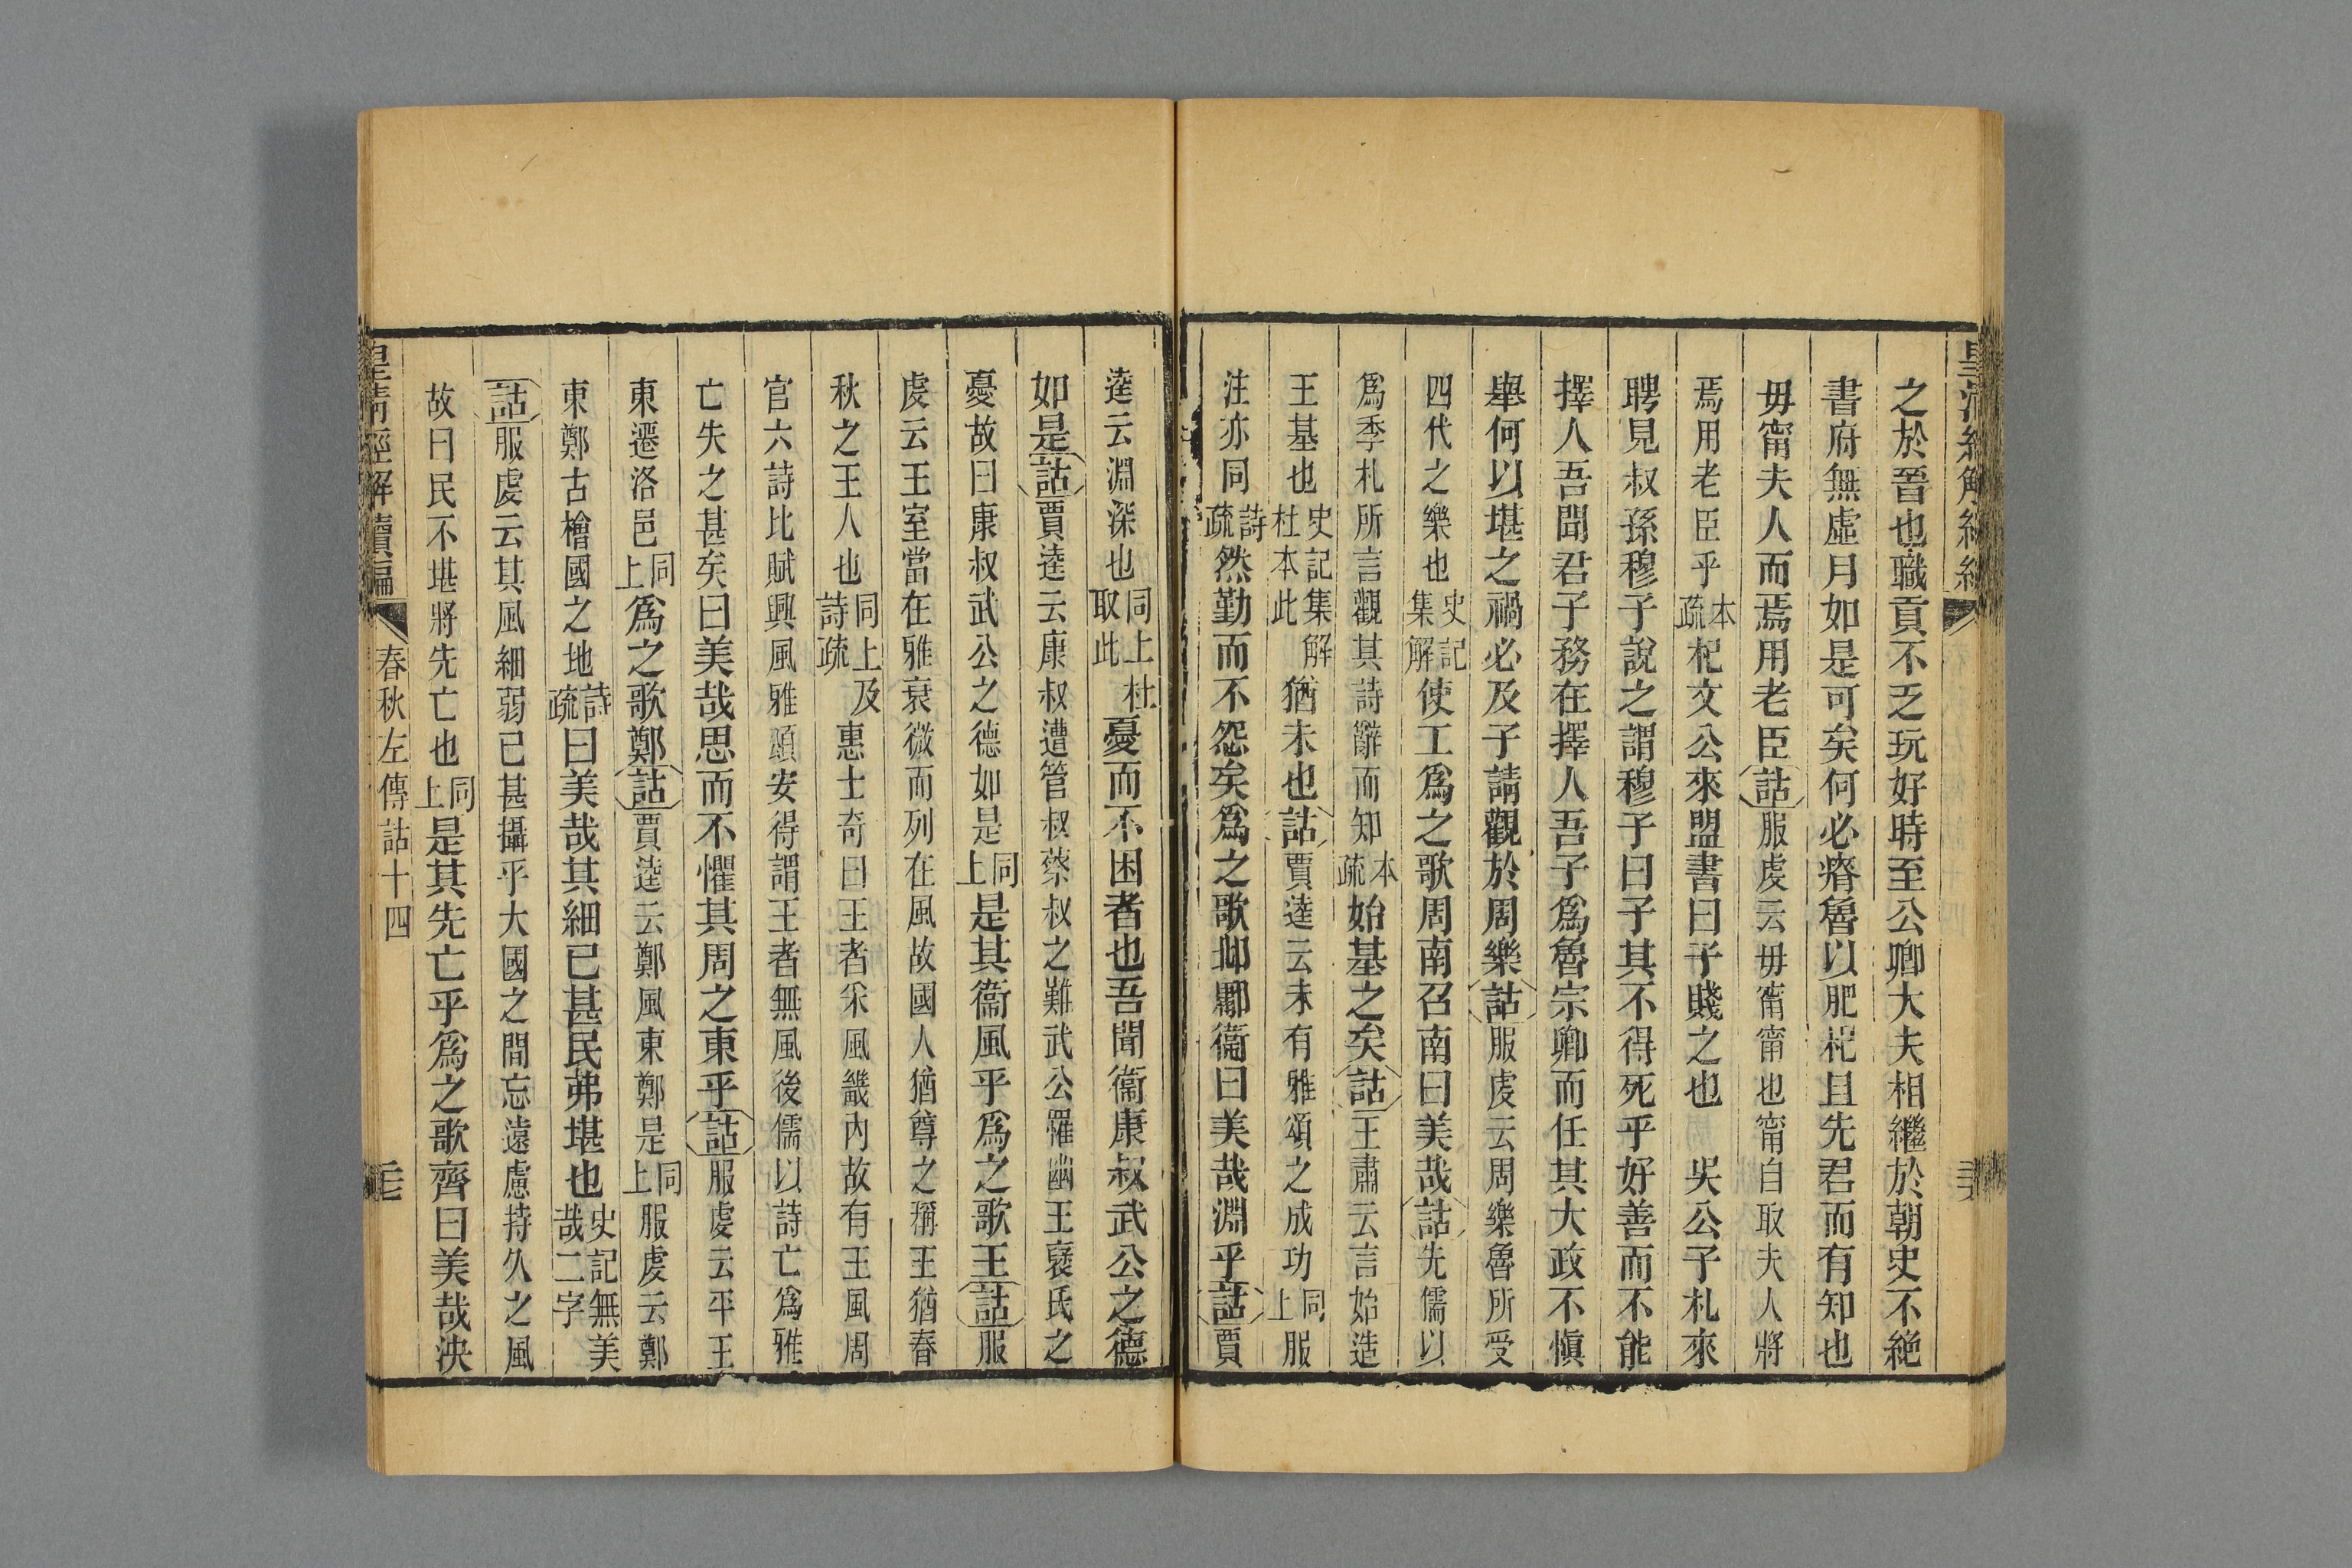 之於晉也職貢不乏玩好時至公卿大夫相繼於朝史不絕
書府無虛月如是可矣何必瘠魯以肥杞且先君而有知也
毋甯夫人而焉用老臣詁服虔云毋甯甯也甯自取夫人將
焉用老臣乎本疏杞文公來盟書曰子賤之也 吳公子札來
聘見叔孫穆子說之謂穆子曰子其不得死乎好善而不能
擇人吾聞君子務在擇人吾子爲魯宗卿而任其大政不愼
舉何以堪之禍必及子請觀於周樂詁服虔云周樂魯所受
四代之樂也史記集解使工爲之歌周南召南曰美哉詁先儒以
爲季札所言觀其詩辭而知本疏始基之矣詁王肅云言始造
王基也史記集解杜本此猶未也詁賈逵云未有雅頌之成功同上服
注亦同詩疏然勤而不怨矣爲之歌邶鄘衞曰美哉淵乎詁賈
逵云淵深也同上杜取此憂而不困者也吾聞衞康叔武公之德
如是詁賈逵云康叔遭管叔蔡叔之難武公罹幽王褒氏之
憂故曰康叔武公之德如是同上是其衞風乎爲之歌王詁服
虔云王室當在雅衰微而列在風故國人猶尊之稱王猶春
秋之王人也同上及詩疏惠士奇曰王者采風畿內故有王風周
官六詩比賦興風雅頌安得謂王者無風後儒以詩亡爲雅
亡失之甚矣曰美哉思而不懼其周之東乎詁服虔云平王
東遷洛邑同上爲之歌鄭詁賈逵云鄭風東鄭是同上服虔云鄭
東鄭古檜國之地詩疏曰美哉其細已甚民弗堪也史記無美哉二字
詁服虔云其風細弱已甚攝乎大國之間忘遠慮持久之風
故曰民不堪將先亡也同上是其先亡乎爲之歌齊曰美哉泱
皇清經解續編 春秋左傳詁十四